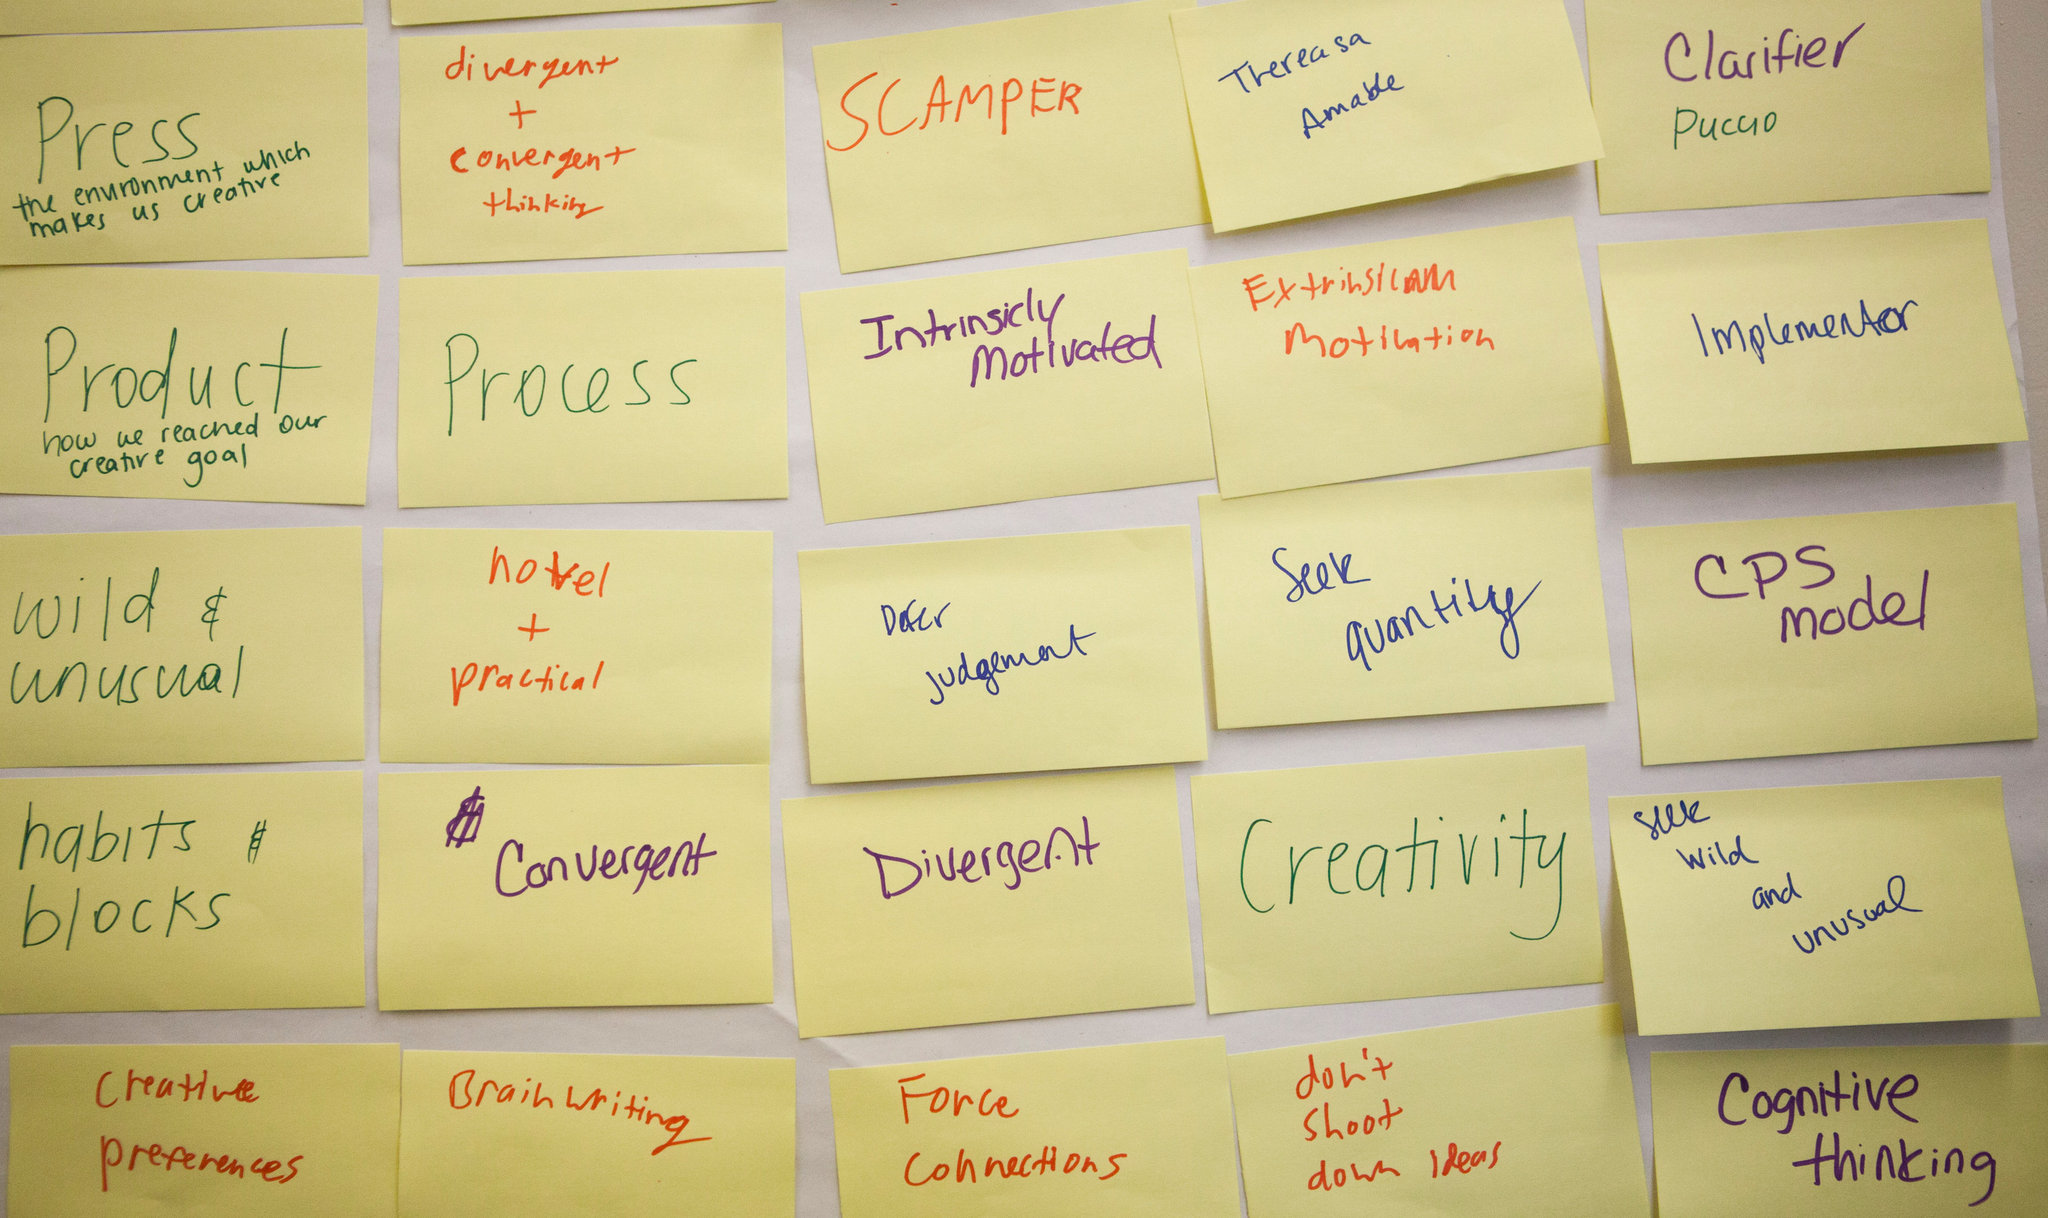 Press
the environment which
makes us creative
divergent
+
convergent
thinking
SCAMPER
Thereasa
Amable
Clarifier
Puccio
Product
how we reached our
creative goal
Process
Intrinsicly
Motivated
Motivation
Implementor
wild &
unusual
novel
+
practical
Defer
judgement
Seek
quantity
CPS
model
habits &
blocks
Convergent
Divergent
Creativity
seek
wild
and
unusual
Creative
preferences
Brainwriting
Force
connections
don't
shoot
down ideas
Cognitive
thinking